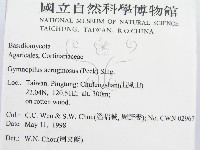 國立自然科學博物館
NATIONAL MUSEUM OF NATURAL SCIENCE
TAICHUNG, TAIWAN, R.O.CHINA
Basidiomycota
Agaricales, Cortinariaceae
Gymnopilus aeruginosus (Peck) Sing.
Taiwan, Pingtung:
22.04N, 120.51E, alt. 300m;
on rotten wood.
Col.: C.C. Wen & S.W. Chou No. CWN 02967
Date: May 11, 1998
Det.: W.N. Chou